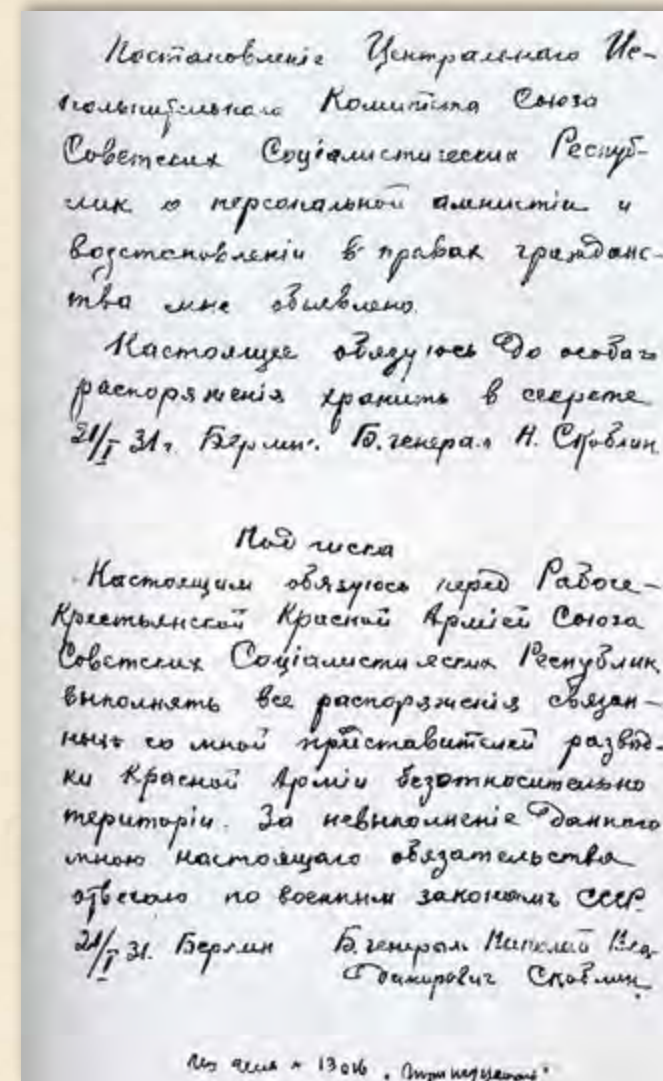 Постановленіе Центральнаго Ис-
полнительнаго Комитета Союза
Советских Соціалистических Респуб-
лик о персональной амнистіи и
возстановленіи в правах гражданс-
тва мне объявлено.
Настоящее обязуюсь до особаго
распоряженія хранить в секрете
21/I 31 г. Берлин. Б. генерал Н. Скоблин
Подписка
Настоящим обязуюсь перед Рабоче-
Крестьянской Красной Арміей Союза
Советских Соціалистических Республик
выполнять все распоряженія связан-
ных со мной представителей развед-
ки Красной Арміи безотносительно
територіи. За невыполненіе даннаго
мною настоящаго обязательства
отвечаю по военным законамъ СССР.
21/I 31. Берлин Б. генерал Николай Вла-
димирович Скоблин